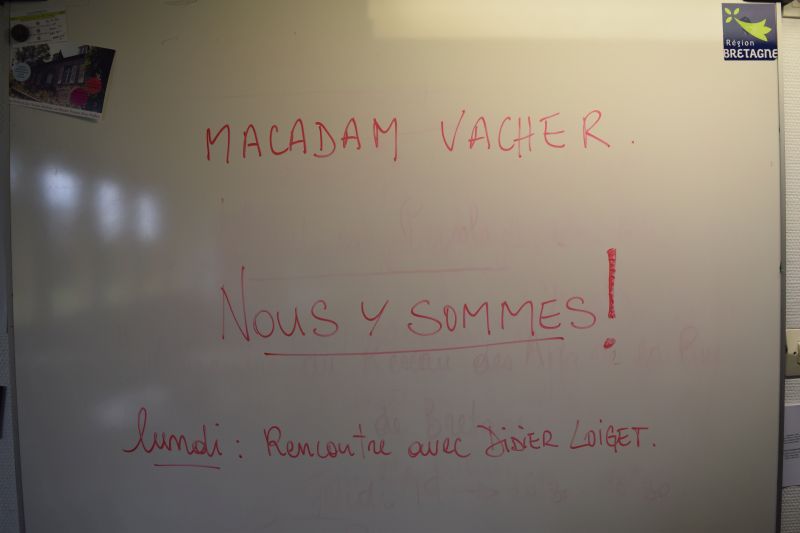 Région
BRETAGNE
MACADAM VACHER.
NOUS Y SOMMES!
lundi : Rencontre avec DIDIER LOIGET.